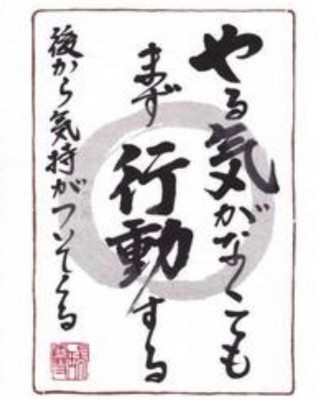 やる気がなくても
まず行動する
後から気持がついてくる